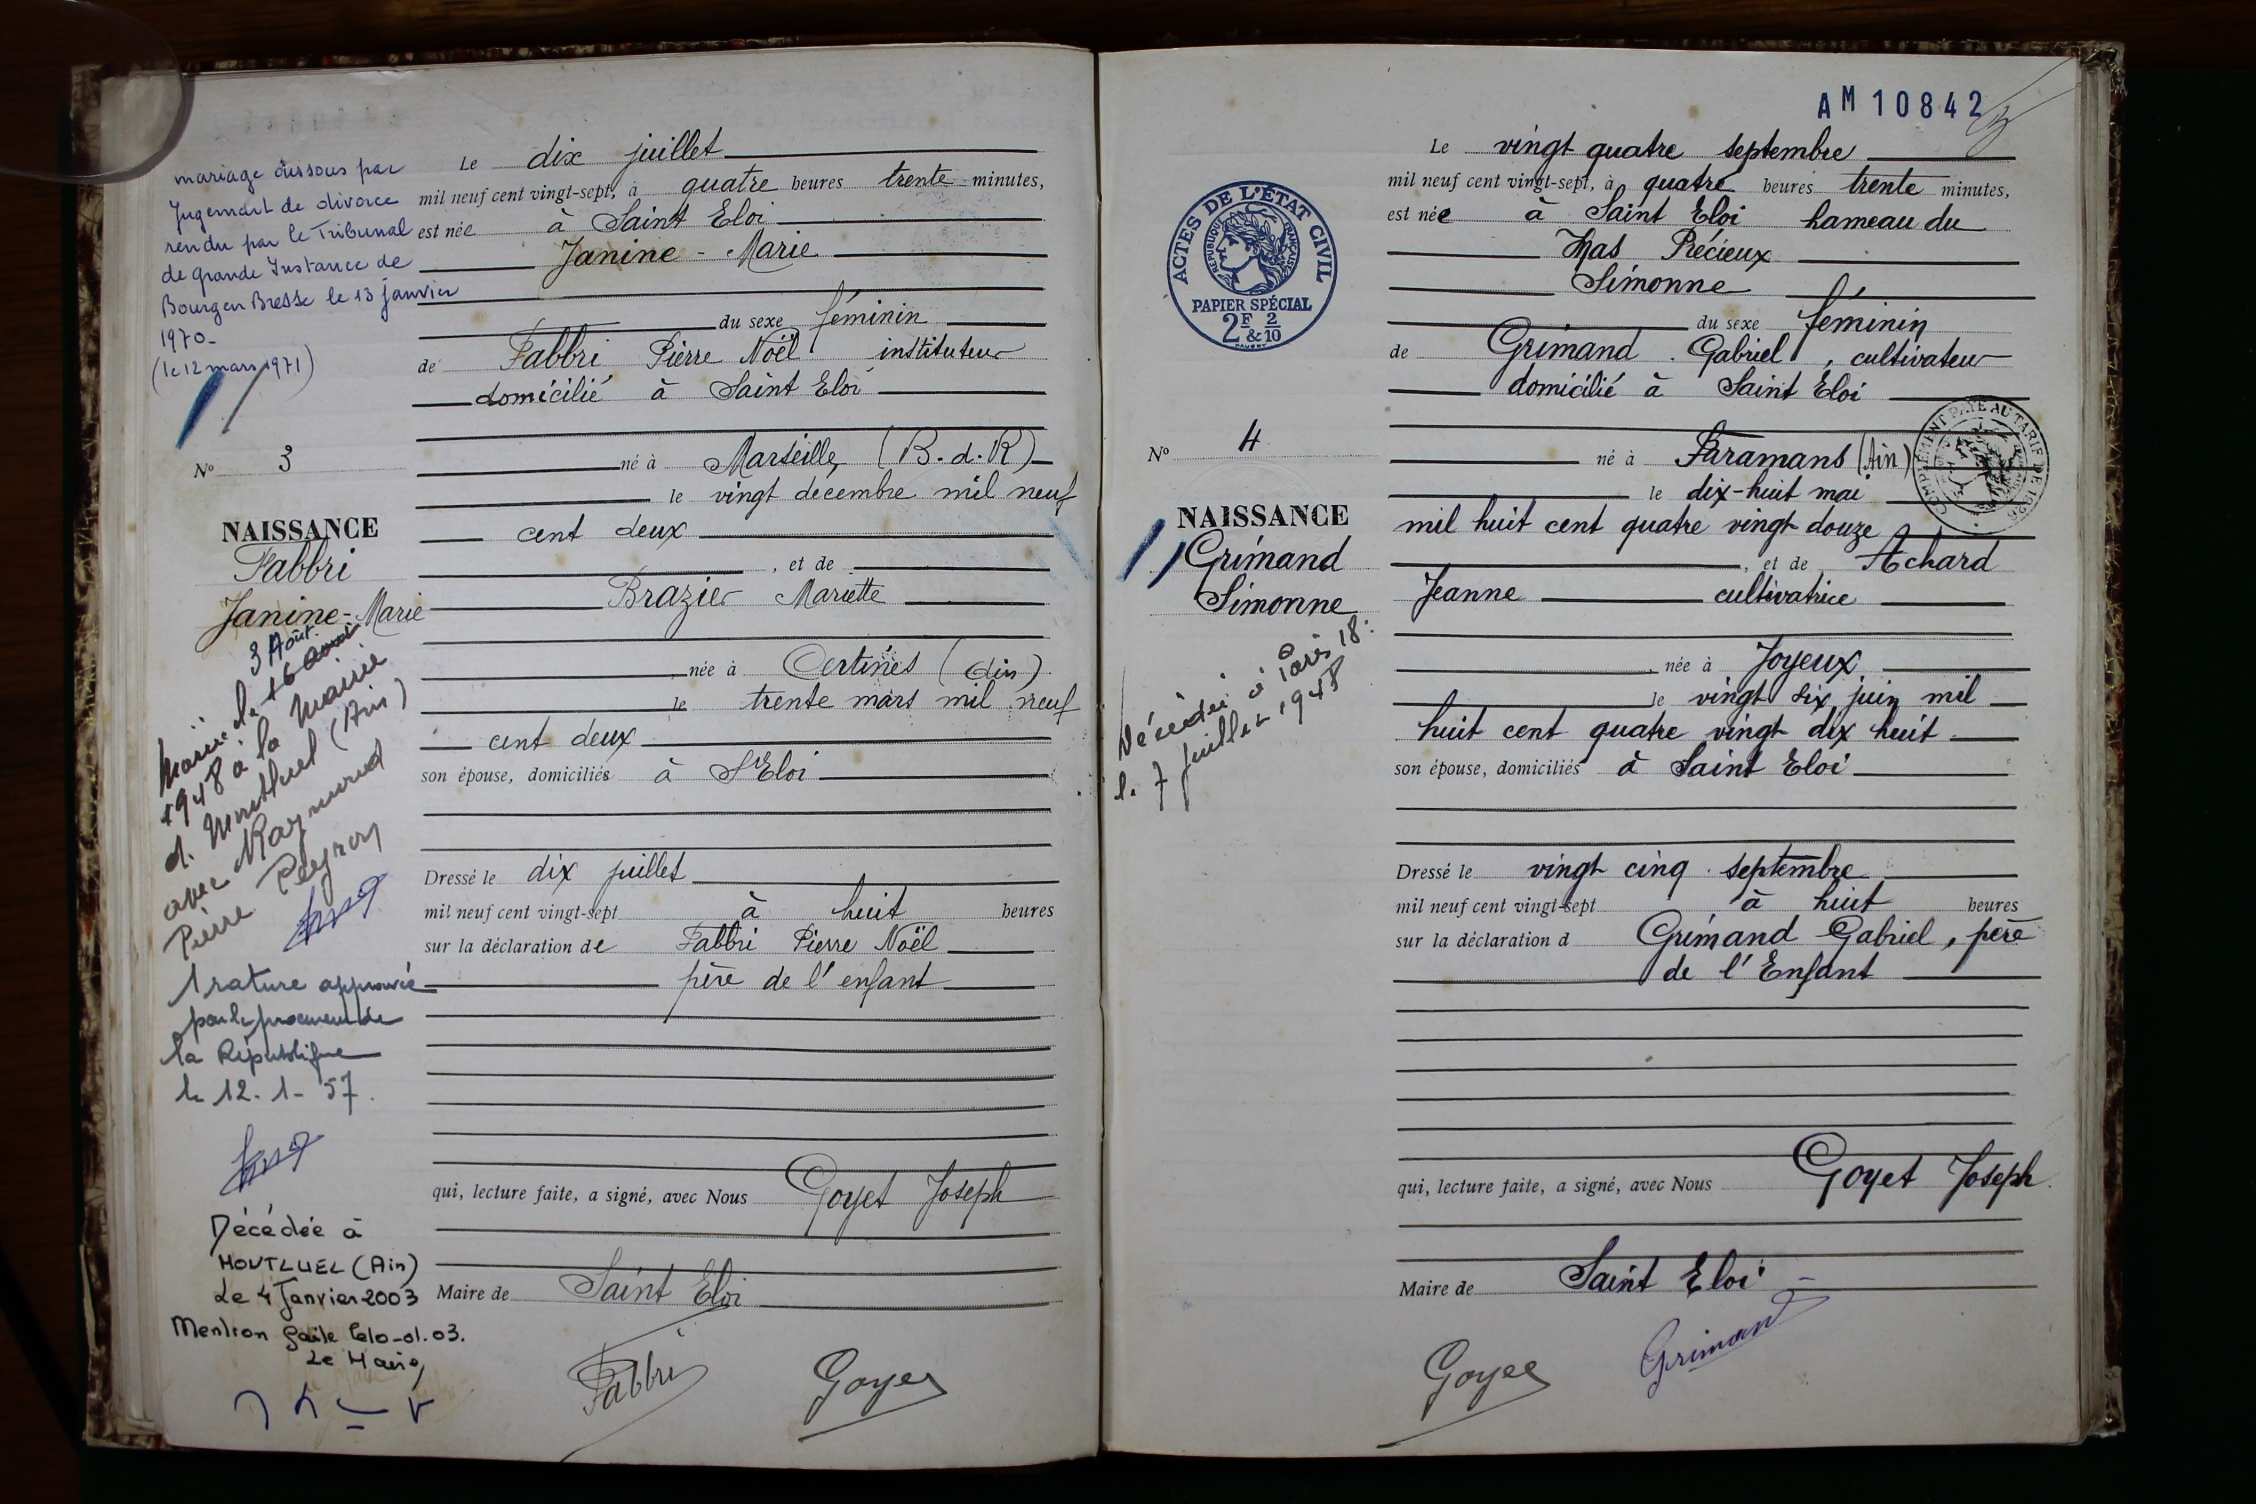 mariage dissous par
Jugement de divorce
rendu par le Tribunal
de grande Instance de
Bourg en Bresse le 13 janvier
1970_
(le 12 mars 1971)
N° 3
NAISSANCE
Fabbri
Janine-Marie
3 Août
Mariée le 16 avril
1948 à la Mairie
de Montluel (Ain)
avec Raymond
Pierre Peyron
1 rature approuvée
par le procureur de
la République
le 12-1-57.
Décédée à
MONTLUEL (Ain)
Le 4 Janvier 2003
Mention faite le 10-01.03.
Le Maire,
Le dix juillet
mil neuf cent vingt-sept, à quatre heures trente minutes,
est née à Saint Eloi
Janine - Marie
du sexe féminin
de Fabbri Pierre Noël instituteur
domicilié à Saint Eloi
né à Marseille, (B.d.R)
le vingt décembre mil neuf
cent deux
, et de
Brazier Mariette
, née à Certines (Ain)
le trente mars mil neuf
cent deux
son épouse, domiciliés à St Eloi
Dressé le dix juillet
mil neuf cent vingt-sept à huit heures
sur la déclaration de Fabbri Pierre Noël
père de l'enfant
qui, lecture faite, a signé, avec Nous Goyet Joseph
Maire de Saint Eloi
Fabbri Goyet
AM 10842
ACTES DE L'ÉTAT CIVIL
RÉPUBLIQUE FRANÇAISE
PAPIER SPÉCIAL
2F & 2/10
N° 4
NAISSANCE
Grimand
Simonne
Décédée à Paris 18:
le 7 juillet 1948
Le vingt quatre septembre
mil neuf cent vingt-sept, à quatre heures trente minutes,
est née à Saint Eloi hameau du
Mas Précieux
Simonne
du sexe féminin
de Grimand Gabriel, cultivateur
domicilié à Saint Eloi
COMPLÉMENT PAYÉ AU TARIF DE 1926
né à Faramans (Ain)
le dix-huit mai
mil huit cent quatre vingt douze
, et de Achard
Jeanne cultivatrice
, née à Joyeux
le vingt six juin mil
huit cent quatre vingt dix huit
son épouse, domiciliés à Saint Eloi
Dressé le vingt cinq septembre
mil neuf cent vingt-sept à huit heures
sur la déclaration d Grimand Gabriel, père
de l'Enfant
qui, lecture faite, a signé, avec Nous Goyet Joseph
Maire de Saint Eloi
Goyet Grimand